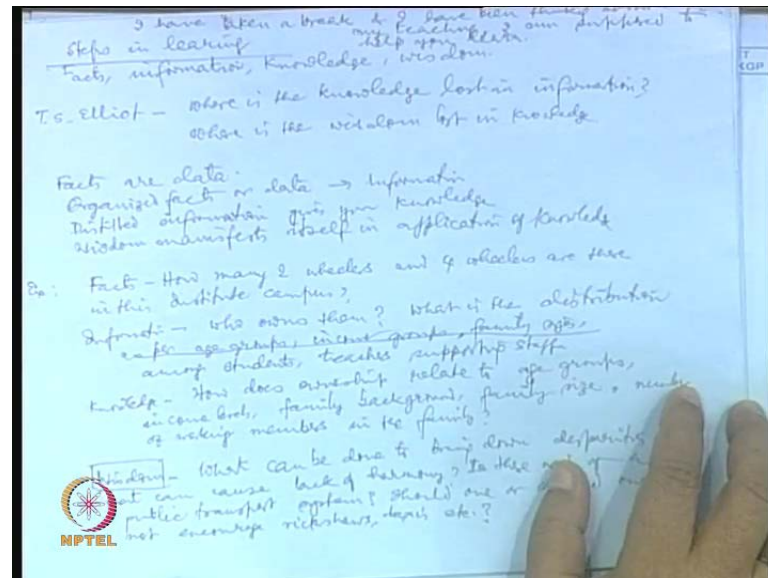 I have taken a break & I have been
my teaching is our supposed to
Steps in learing help you learn.
Facts, information, knowledge, wisdom.
T.S. Elliot - where is the knowledge lost in information?
where is the wisdom lost in knowledge
Facts are data.
Organized facts or data → Information
Distilled information gives you knowledge
Wisdom manifests itself in application of knowledge
Ex: Facts - How many 2 wheelers and 4 wheelers are there
in this Institute campus?
Information - who owns them? What is the distribution
as per age groups, income groups, family ages,
among students, teaches supporting staff
Knowledge - How does ownership relate to age groups,
income levels, family background, family size, number
of working members in the family?
Wisdom - What can be done to bring down disparities
that can cause lack of harmony? Is there need of
public transport system? Should one or
not encourage rickshaws, etc.?
NPTEL
OP